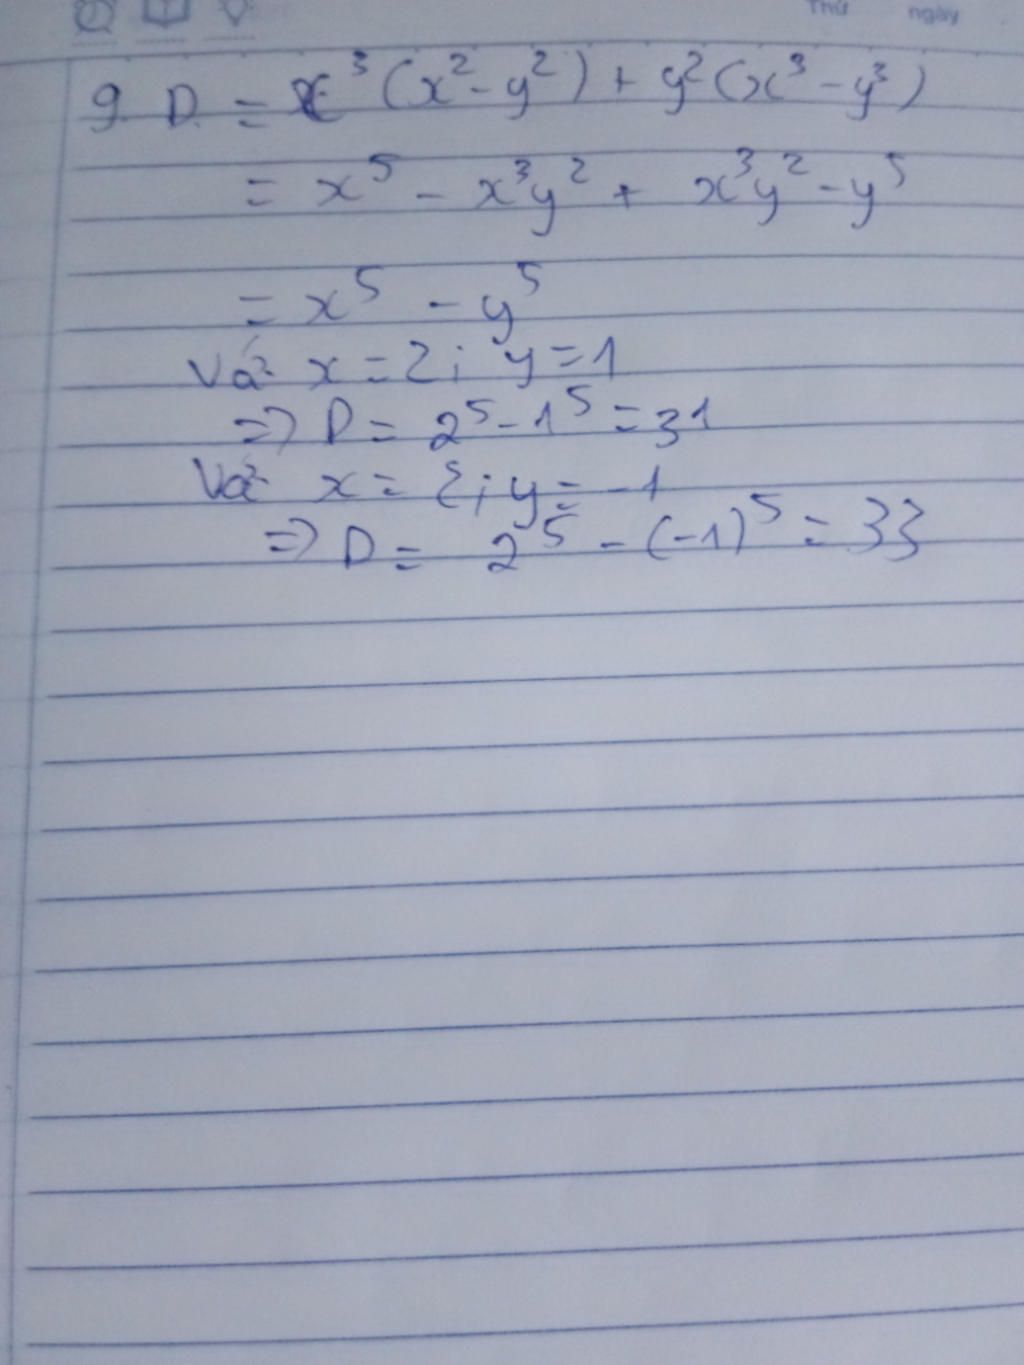 Thứ ngày
9. D = x³ (x² - y²) + y² (x³ - y³)
= x⁵ - x³y² + x³y² - y⁵
= x⁵ - y⁵
Với x = 2; y = 1
=> D = 2⁵ - 1⁵ = 31
Với x = 2; y = -1
=> D = 2⁵ - (-1)⁵ = 33